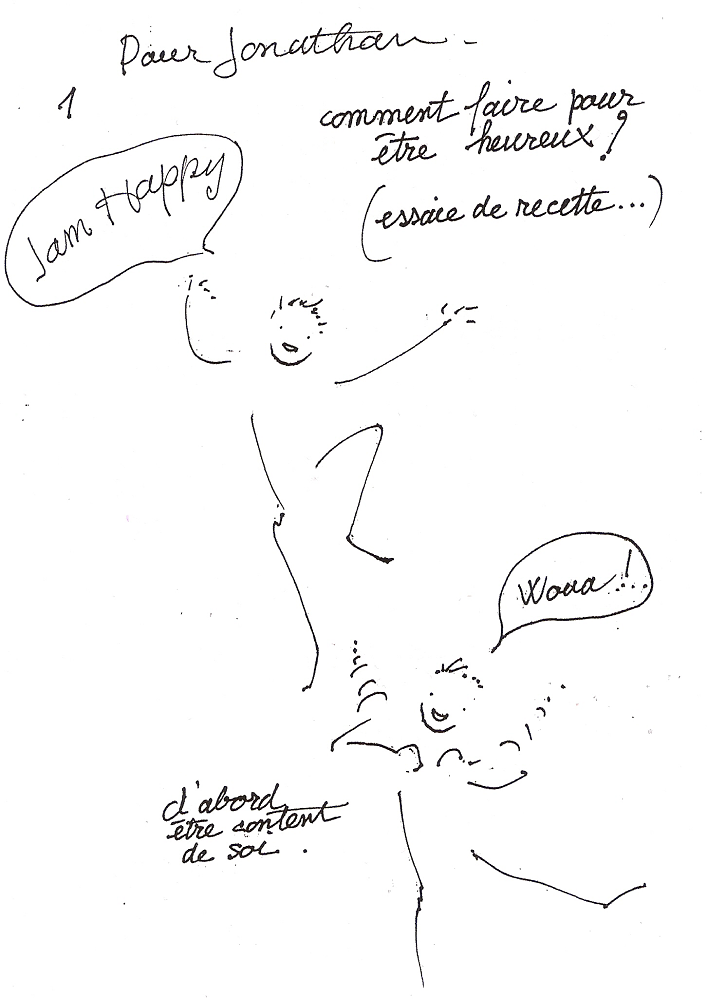 Pour Jonathan -
1
comment faire pour
être heureux?
(essaie de recette...)
I am Happy
Woua!...
d'abord
être content
de soi.